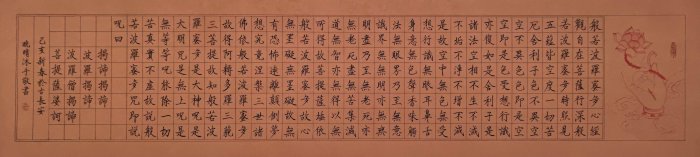 般若波羅蜜多心經
觀自在菩薩行深般
若波羅蜜多時照見
五蘊皆空度一切苦
厄舍利子色不異空
空不異色色即是空
空即是色受想行識
亦復如是舍利子是
諸法空相不生不滅
不垢不淨不增不減
是故空中無色無受
想行識無眼耳鼻舌
身意無色聲香味觸
法無眼界乃至無意
識界無無明亦無無
明盡乃至無老死亦
無老死盡無苦集滅
道無智亦無得以無
所得故菩提薩埵依
般若波羅蜜多故心
無罣礙無罣礙故無
有恐怖遠離顛倒夢
想究竟涅槃三世諸
佛依般若波羅蜜多
故得阿耨多羅三藐
三菩提故知般若波
羅蜜多是大神咒是
大明咒是無上咒是
無等等咒能除一切
苦真實不虛故說般
若波羅蜜多咒即說
咒曰
揭諦揭諦
波羅揭諦
波羅僧揭諦
菩提薩婆訶
己亥新春於古長安
晚晴沐手敬書